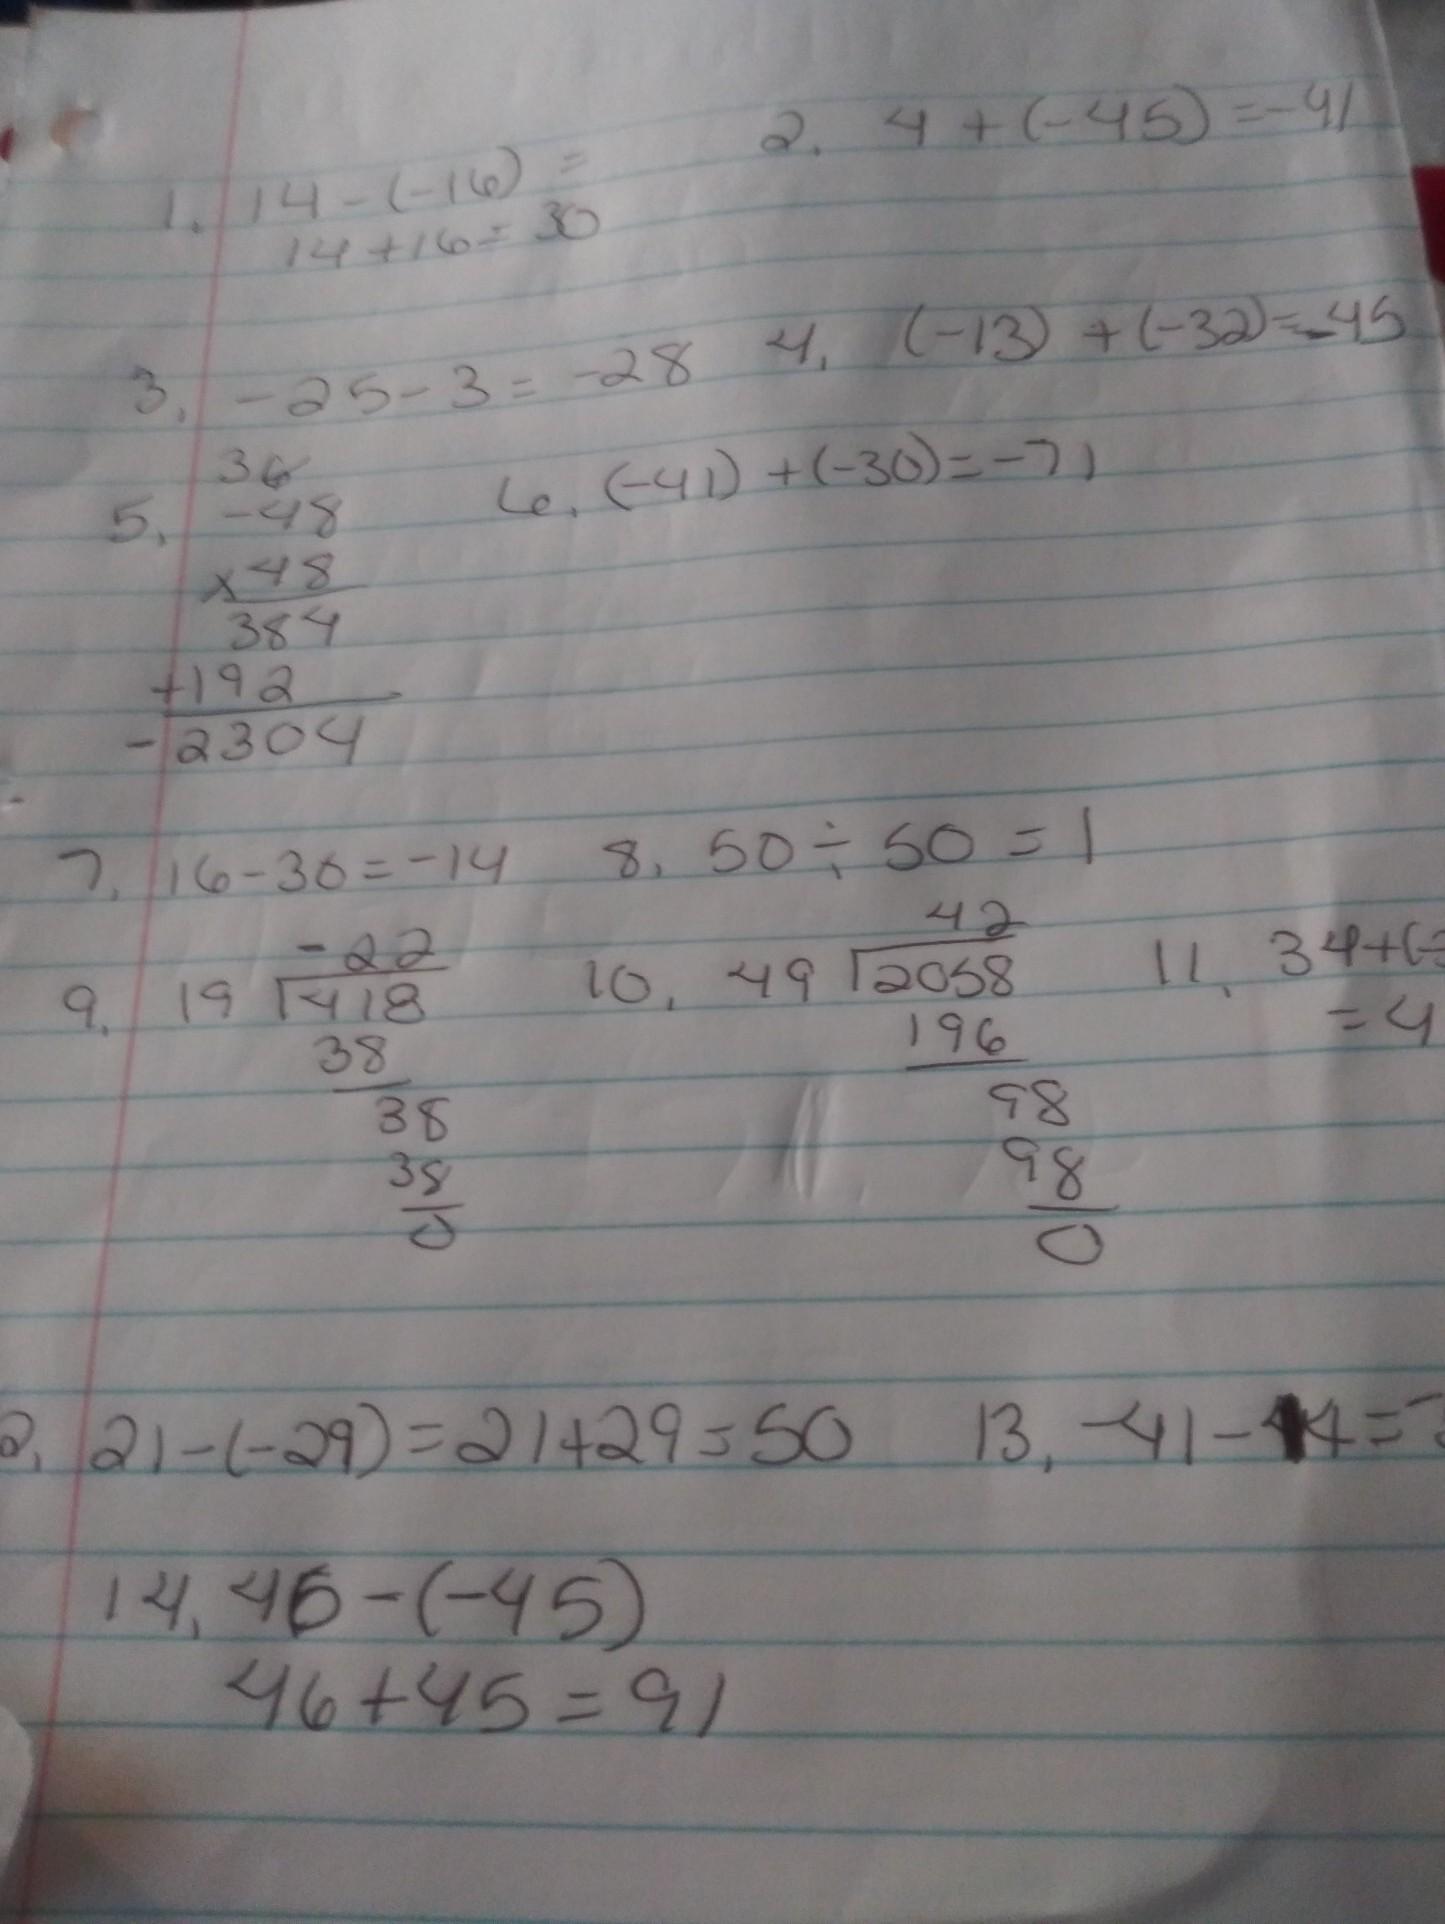 1. 14 - (-16) =
14 + 16 = 30
2. 4 + (-45) = -41
3. -25 - 3 = -28
4. (-13) + (-32) = -45
5. 36
-48
x 48
384
+192
-2304
6. (-41) + (-30) = -71
7. 16 - 30 = -14
8. 50 ÷ 50 = 1
-22
9. 19 418
38
38
38
0
42
10. 49 2058
196
98
98
0
11. 34 + (-
= 4
2. 21 - (-29) = 21 + 29 = 50
13. -41 - 4 =
14. 46 - (-45)
46 + 45 = 91